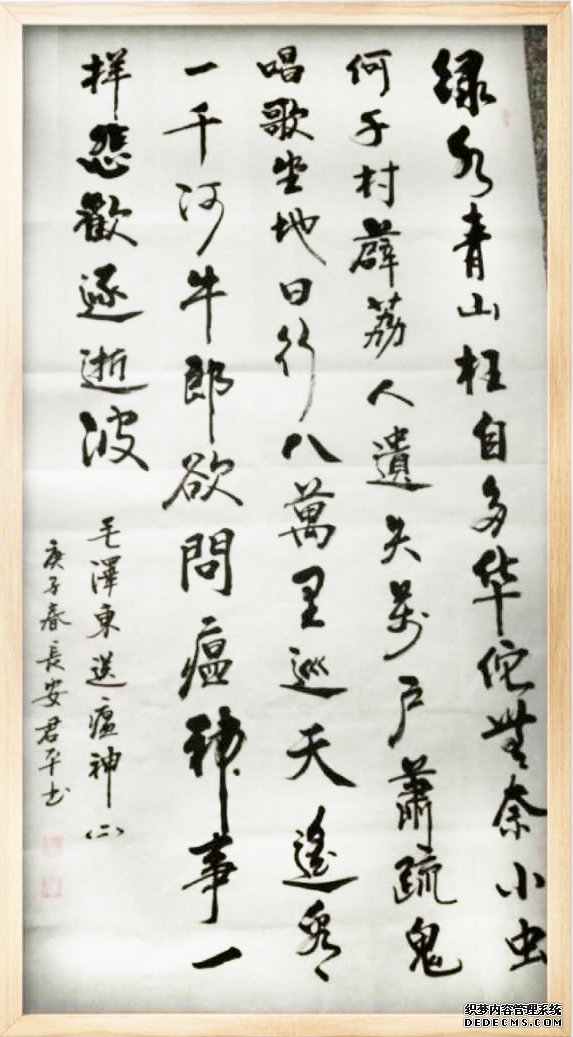 绿水青山枉自多华佗無奈小虫
何千村薜荔人遺矢萬户蕭疏鬼
唱歌坐地日行八萬里巡天遙看
一千河牛郎欲問瘟神事一
样悲歡逐逝波
毛澤東送瘟神(二)
庚子春長安君平书
织梦内容管理系统
DEDECMS.COM